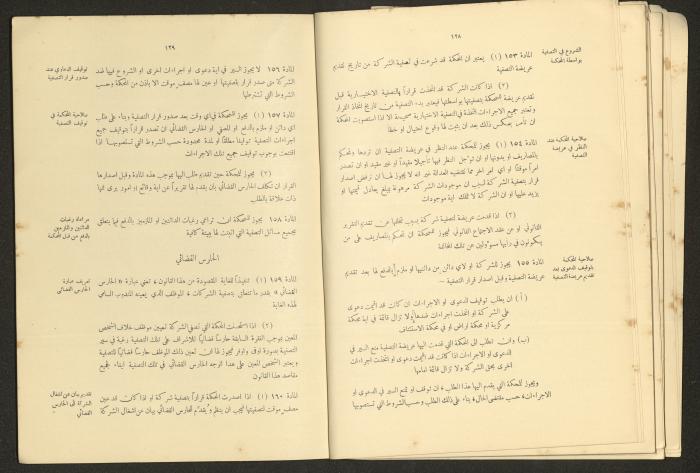 ١٢٨
الشروع في التصفية
بواسطة المحكمة
المادة ١٥٣ (١) يعتبر ان المحكمة قد شرعت في تصفية الشركة من تاريخ تقديم
عريضة التصفية
(٢) اذا كانت الشركة قد اتخذت قراراً بالتصفية الاختيارية قبل
تقديم عريضة للمحكمة بتصفيتها بواسطتها فيعتبر بدء التصفية من تاريخ اتخاذ القرار
وتعتبر جميع الاجراءات المتخذة في التصفية الاختيارية صحيحة الا اذا استصوبت المحكمة
ان تأمر بعكس ذلك بعد ان يثبت لها وقوع احتيال او خطأ
صلاحية المحكمة عند
النظر في عريضة
التصفية
المادة ١٥٤ (١) يجوز للمحكمة عند النظر في عريضة التصفية ان تردها وتحكم
بالمصاريف او بدونها او ان تؤجل النظر فيها تأجيلا مقيداً او غير مقيد او ان تصدر
امراً موقتاً او اي امر آخر مما تقتضيه العدالة غير انه لا يجوز لها ان ترفض اصدار
قرار بتصفية الشركة لسبب ان موجودات الشركة مرهونة بمبلغ يعادل قيمتها او
يزيد عليها او ان الشركة لا تملك اية موجودات
(٢) اذا قدمت عريضة لتصفية شركة بسبب تخلفها عن تقديم التقرير
القانوني او عن عقد الاجتماع القانوني فيجوز للمحكمة ان تحكم بالمصاريف على من
يكونون في رأيها مسؤولين عن تلك المخالفة
صلاحية المحكمة
بتوقيف الدعوى بعد
تقديم عريضة التصفية
المادة ١٥٥ يجوز للشركة او لاي دائن من دائنيها او ملزم بالدفع لها بعد تقديم
عريضة التصفية وقبل اصدار قرار التصفية –
(أ) ان يطلب توقيف الدعوى او الاجراءات ان كانت قد اقيمت دعوى
على الشركة او اتخذت اجراءات ضدها ولا تزال قائمة في اية محكمة
مركزية او محكمة اراض او في محكمة الاستئناف
(ب) وان يطلب الى المحكمة التي قدمت اليها عريضة التصفية منع السير في
الدعوى او الاجراءات اذا كانت قد اقيمت دعوى او اتخذت اجراءات
اخرى بحق الشركة ولا تزال قائمة امامها
ويجوز للمحكمة التي يقدم اليها هذا الطلب ان توقف او تمنع السير في الدعوى او
الاجراءات حسب مقتضى الحال بناء على ذلك الطلب وحسب الشروط التي تستصوبها
١٢٩
توقيف الدعاوي عند
صدور قرار التصفية
المادة ١٥٦ لا يجوز السير في اية دعوى او اجراءات اخرى او الشروع فيها ضد
الشركة متى صدر قرار بتصفيتها او عين لها مصف موقت الا باذن من المحكمة وحسب
الشروط التي تشترطها
صلاحية المحكمة في
توقيف التصفية
المادة ١٥٧ (١) يجوز للمحكمة في اي وقت بعد صدور قرار التصفية وبناء على طلب
اي دائن او ملزم بالدفع او المصفي او الحارس القضائي ان تصدر قراراً بتوقيف جميع
اجراءات التصفية توقيفاً مطلقاً او لمدة محدودة حسب الشروط التي تستصوبها اذا
اقتنعت بوجوب توقيف جميع تلك الاجراءات
(٢) يجوز للمحكمة حين تقديم طلب اليها بموجب هذه المادة وقبل اصدارها
القرار ان تكلف الحارس القضائي بان يقدم لها تقريراً عن اية وقائع او امور يرى انها
ذات علاقة بالطلب
مراعاة رغبات
الدائنين والملزمين
بالدفع من قبل المحكمة
المادة ١٥٨ يجوز للمحكمة ان تراعي رغبات الدائنين او الملزمين بالدفع فيما يتعلق
بجميع مسائل التصفية التي اثبتت لها ببينة كافية
الحارس القضائي
تعريف عبارة
الحارس القضائي
المادة ١٥٩ (١) تنفيذاً للغاية المقصودة من هذا القانون تعني عبارة « الحارس
القضائي » بقدر ما تتعلق بتصفية الشركات الموظف الذي يعينه المندوب السامي
لهذه الغاية
(٢) اذا استحسنت المحكمة التي تصفي الشركة تعيين موظف خلاف الشخص
المعين بموجب الفقرة السابقة حارساً قضائياً للاشراف على تلك التصفية رغبة في سير
التصفية بصورة اوفق واوفر فيجوز لها ان تعين ذلك الموظف حارساً قضائياً للتصفية
ويعتبر الشخص المعين على هذا الوجه الحارس القضائي في تلك التصفية ايفاء لجميع
مقاصد هذا القانون
تقديم بيان عن اشغال
الشركة الى الحارس
القضائي
المادة ١٦٠ (١) اذا اصدرت المحكمة قراراً بتصفية شركة او اذا كانت قد عينت
مصف موقت لتصفيتها فيجب ان ينظم ويقدم للحارس القضائي بيان عن اشغال الشركة